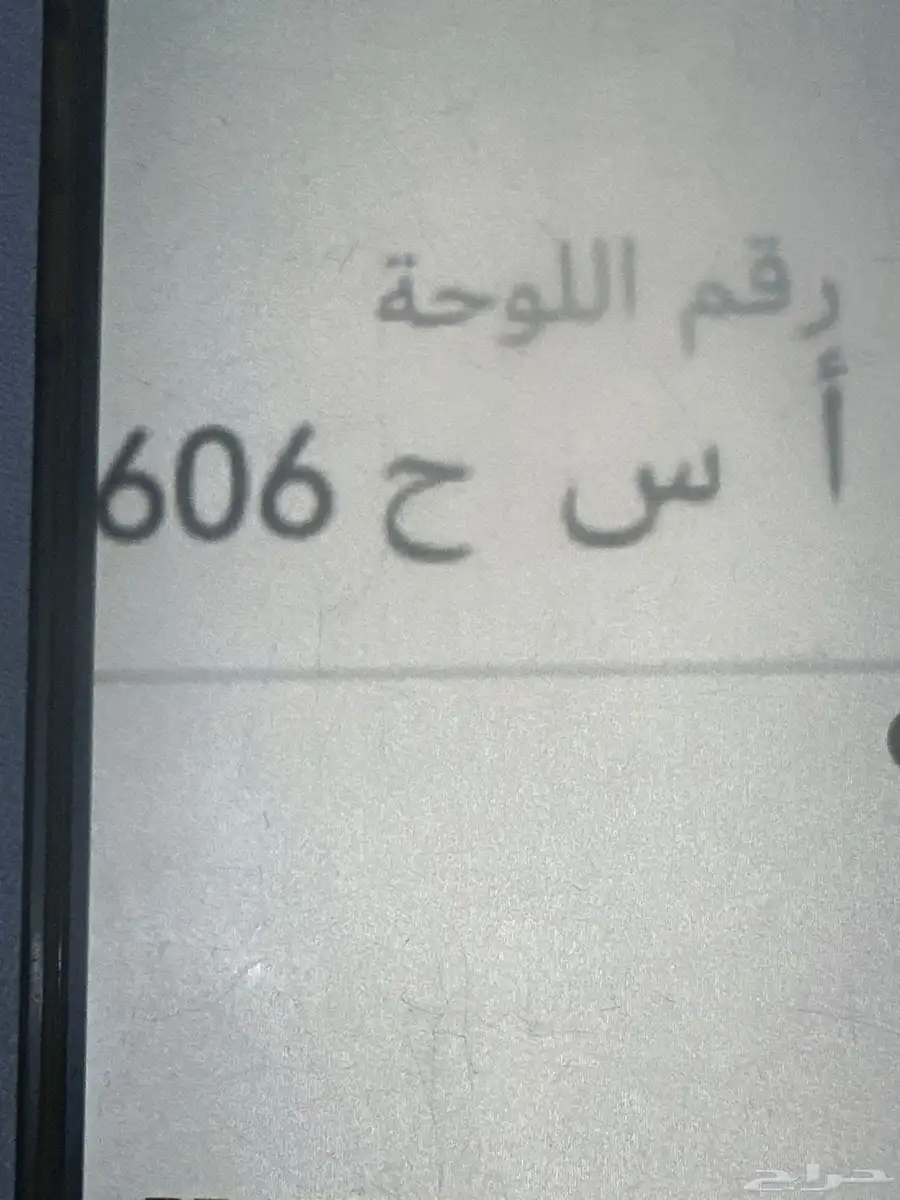 رقم اللوحة
أ س ح 606
حراج